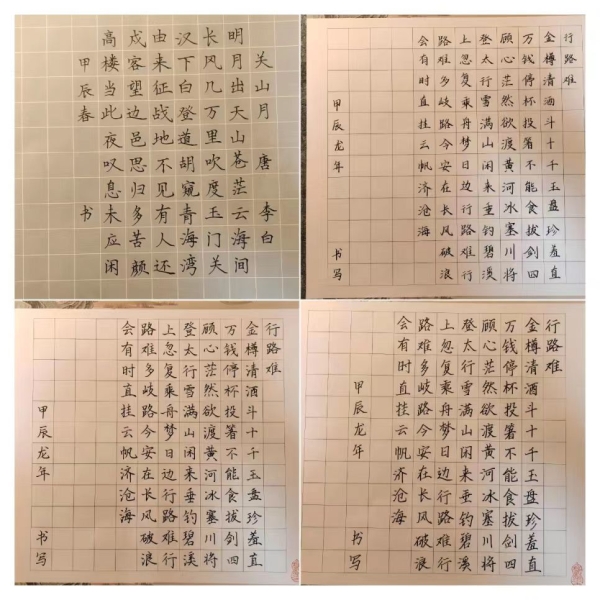 关山月 唐 李白
明月出天山苍茫云海间
长风几万里吹度玉门关
汉下白登道胡窥青海湾
由来征战地不见有人还
戍客望边邑思归多苦颜
高楼当此夜叹息未应闲
甲辰春 书
行路难
金樽清酒斗十千玉盘珍羞直
万钱停杯投箸不能食拔剑四
顾心茫然欲渡黄河冰塞川将
登太行雪满山闲来垂钓碧溪
上忽复乘舟梦日边行路难行
路难多歧路今安在长风破浪
会有时直挂云帆济沧海
甲辰龙年 书写
行路难
金樽清酒斗十千玉盘珍羞直
万钱停杯投箸不能食拔剑四
顾心茫然欲渡黄河冰塞川将
登太行雪满山闲来垂钓碧溪
上忽复乘舟梦日边行路难行
路难多歧路今安在长风破浪
会有时直挂云帆济沧海
甲辰龙年 书写
行路难
金樽清酒斗十千玉盘珍羞直
万钱停杯投箸不能食拔剑四
顾心茫然欲渡黄河冰塞川将
登太行雪满山闲来垂钓碧溪
上忽复乘舟梦日边行路难行
路难多歧路今安在长风破浪
会有时直挂云帆济沧海
甲辰龙年 书写